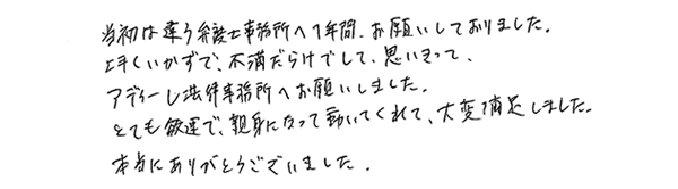 当初は違う弁護士事務所へ1年間、お願いしておりました。
上手くいかずで、不満だらけでして、思いきって、
アディーレ法律事務所へお願いしました。
とても敏速で、親身になって動いてくれて、大変満足しました。
本当にありがとうございました。